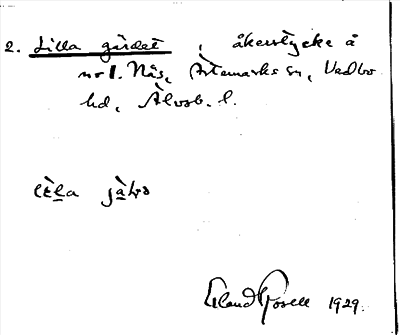 2. Lilla gärdet, åkerstycke å
nr 1. Näs, Ärtemarks sn, Vedbo
hd, Älvsb. l.
lìl̲a jà̲ḷə
Erland Rosell 1929.